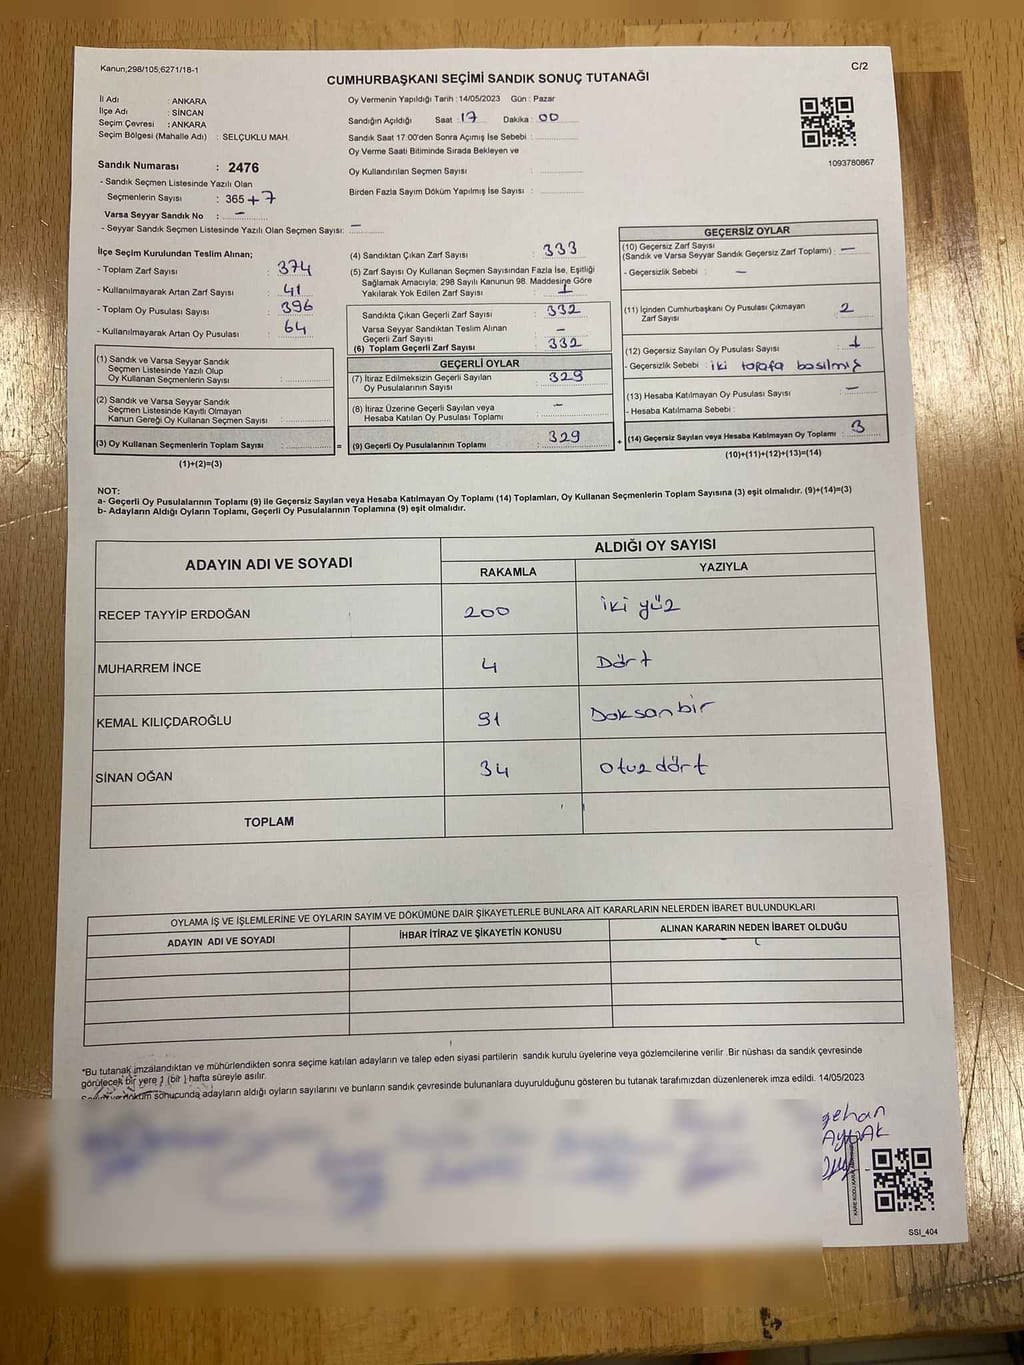 Kanun;298/105;6271/18-1
C/2
CUMHURBAŞKANI SEÇİMİ SANDIK SONUÇ TUTANAĞI
İl Adı : ANKARA
İlçe Adı : SİNCAN
Seçim Çevresi : ANKARA
Seçim Bölgesi (Mahalle Adı) : SELÇUKLU MAH.
Oy Vermenin Yapıldığı Tarih : 14/05/2023 Gün : Pazar
Sandığın Açıldığı Saat : 17 Dakika : 00
Sandık Saat 17:00'den Sonra Açmış İse Sebebi :
Oy Verme Saati Bitiminde Sırada Bekleyen ve
Oy Kullandırılan Seçmen Sayısı :
Birden Fazla Sayım Döküm Yapılmış İse Sayısı :
1093780867
Sandık Numarası : 2476
- Sandık Seçmen Listesinde Yazılı Olan
Seçmenlerin Sayısı : 365 + 7
Varsa Seyyar Sandık No : -
- Seyyar Sandık Seçmen Listesinde Yazılı Olan Seçmen Sayısı: -
İlçe Seçim Kurulundan Teslim Alınan;
- Toplam Zarf Sayısı : 374
- Kullanılmayarak Artan Zarf Sayısı : 41
- Toplam Oy Pusulası Sayısı : 396
- Kullanılmayarak Artan Oy Pusulası : 64
(1) Sandık ve Varsa Seyyar Sandık
Seçmen Listesinde Yazılı Olup
Oy Kullanan Seçmenlerin Sayısı :
(2) Sandık ve Varsa Seyyar Sandık
Seçmen Listesinde Kayıtlı Olmayan
Kanun Gereği Oy Kullanan Seçmen Sayısı :
(3) Oy Kullanan Seçmenlerin Toplam Sayısı : =
(1)+(2)=(3)
(4) Sandıktan Çıkan Zarf Sayısı : 333
(5) Zarf Sayısı Oy Kullanan Seçmen Sayısından Fazla İse, Eşitliği
Sağlamak Amacıyla; 298 Sayılı Kanunun 98. Maddesine Göre
Yakılarak Yok Edilen Zarf Sayısı : 1
Sandıkta Çıkan Geçerli Zarf Sayısı : 332
Varsa Seyyar Sandıktan Teslim Alınan
Geçerli Zarf Sayısı : -
(6) Toplam Geçerli Zarf Sayısı : 332
GEÇERLİ OYLAR
(7) İtiraz Edilmeksizin Geçerli Sayılan
Oy Pusulalarının Sayısı : 329
(8) İtiraz Üzerine Geçerli Sayılan veya
Hesaba Katılan Oy Pusulası Toplamı : -
(9) Geçerli Oy Pusulalarının Toplamı : 329 +
GEÇERSİZ OYLAR
(10) Geçersiz Zarf Sayısı
(Sandık ve Varsa Seyyar Sandık Geçersiz Zarf Toplamı) : -
- Geçersizlik Sebebi : -
(11) İçinden Cumhurbaşkanı Oy Pusulası Çıkmayan
Zarf Sayısı : 2
(12) Geçersiz Sayılan Oy Pusulası Sayısı : 1
- Geçersizlik Sebebi : iki tarafa basılmış
(13) Hesaba Katılmayan Oy Pusulası Sayısı : -
- Hesaba Katılmama Sebebi :
(14) Geçersiz Sayılan veya Hesaba Katılmayan Oy Toplamı : 3
(10)+(11)+(12)+(13)=(14)
NOT:
a- Geçerli Oy Pusulalarının Toplamı (9) ile Geçersiz Sayılan veya Hesaba Katılmayan Oy Toplamı (14) Toplamları, Oy Kullanan Seçmenlerin Toplam Sayısına (3) eşit olmalıdır. (9)+(14)=(3)
b- Adayların Aldığı Oyların Toplamı, Geçerli Oy Pusulalarının Toplamına (9) eşit olmalıdır.
ADAYIN ADI VE SOYADI
ALDIĞI OY SAYISI
RAKAMLA YAZIYLA
RECEP TAYYİP ERDOĞAN 200 iki yüz
MUHARREM İNCE 4 Dört
KEMAL KILIÇDAROĞLU 91 Doksanbir
SİNAN OĞAN 34 otuzdört
TOPLAM
OYLAMA İŞ VE İŞLEMLERİNE VE OYLARIN SAYIM VE DÖKÜMÜNE DAİR ŞİKAYETLERLE BUNLARA AİT KARARLARIN NELERDEN İBARET BULUNDUKLARI
ADAYIN ADI VE SOYADI İHBAR İTİRAZ VE ŞİKAYETİN KONUSU ALINAN KARARIN NEDEN İBARET OLDUĞU
*Bu tutanak imzalandıktan ve mühürlendikten sonra seçime katılan adayların ve talep eden siyasi partilerin sandık kurulu üyelerine veya gözlemcilerine verilir .Bir nüshası da sandık çevresinde
görülecek bir yere 1 (bir ) hafta süreyle asılır.
döküm sonucunda adayların aldığı oyların sayılarını ve bunların sandık çevresinde bulunanlara duyurulduğunu gösteren bu tutanak tarafımızdan düzenlenerek imza edildi. 14/05/2023
SSI_404